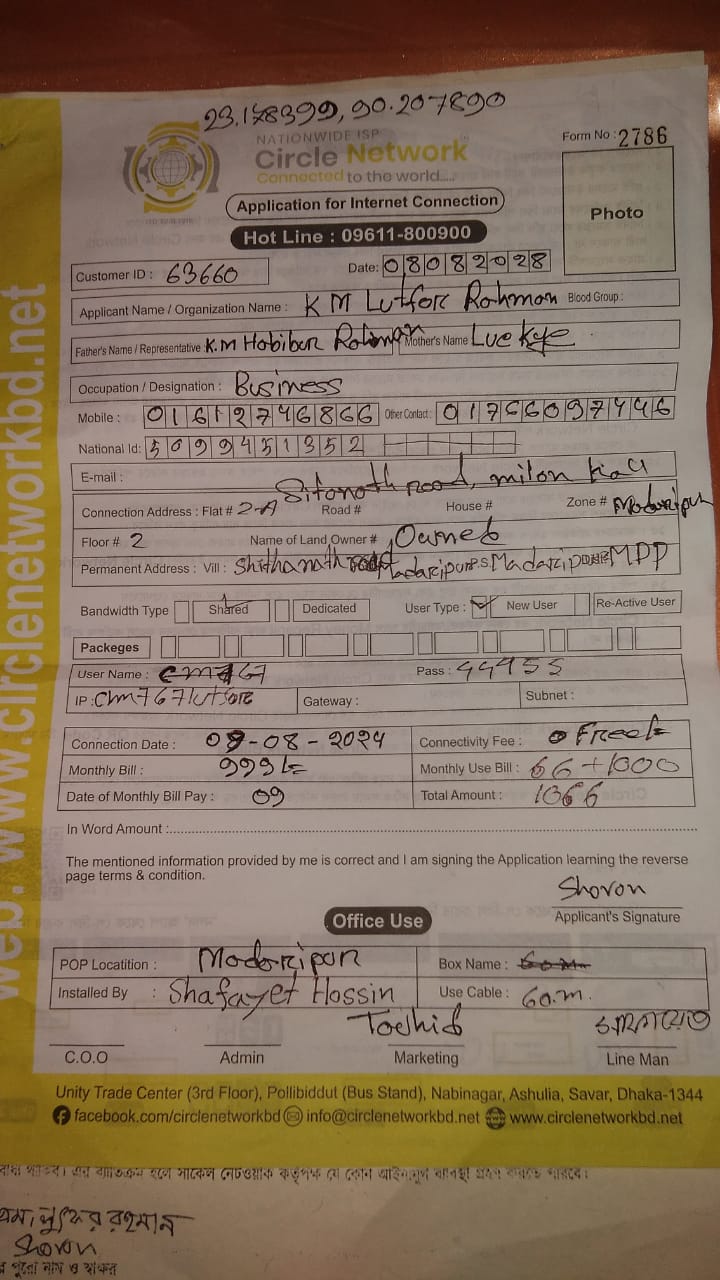 23.178399, 90.207890
NATIONWIDE ISP
Circle Network
Connected to the world.....
Form No : 2786
Photo
Application for Internet Connection
Hot Line : 09611-800900
Customer ID : 63660
Date: 08082028
Applicant Name / Organization Name : K M Lutfor Rahman Blood Group :
Father's Name / Representative K.M Habibur Rahman Mother's Name
Occupation / Designation : Business
Mobile : 01612746866 Other Contact : 01766097446
National Id: 5099451352
E-mail :
Sitanath road, milon
Connection Address : Flat # 2-A Road # House # Zone # Madaripur
Floor # 2 Name of Land Owner # Owned
Permanent Address : Vill : Shithanath road Madaripur P.S Madaripur Dist MDP
Bandwidth Type Shared Dedicated User Type : New User Re-Active User
Packeges
User Name : cm767 Pass : 44455
IP : Gateway : Subnet :
Connection Date : 09-08-2024 Connectivity Fee : Free
Monthly Bill : 999 Monthly Use Bill : 66+1000
Date of Monthly Bill Pay : 09 Total Amount : 1066
In Word Amount :
The mentioned information provided by me is correct and I am signing the Application learning the reverse
page terms & condition.
Shovon
Applicant's Signature
Office Use
POP Locatition : Madaripur Box Name :
Installed By : Shafayet Hossin Use Cable : 60.m.
Towhid
C.O.O Admin Marketing Line Man
Unity Trade Center (3rd Floor), Pollibiddut (Bus Stand), Nabinagar, Ashulia, Savar, Dhaka-1344
facebook.com/circlenetworkbd info@circlenetworkbd.net www.circlenetworkbd.net
web: www.circlenetworkbd.net
হলে সার্কেল নেটওয়ার্ক কর্তৃপক্ষ যে কোন আইনানুগ ব্যবস্থা গ্রহণ করতে পারবে।
লুৎফর রহমান
Shovon
পুরো নাম ও স্বাক্ষর